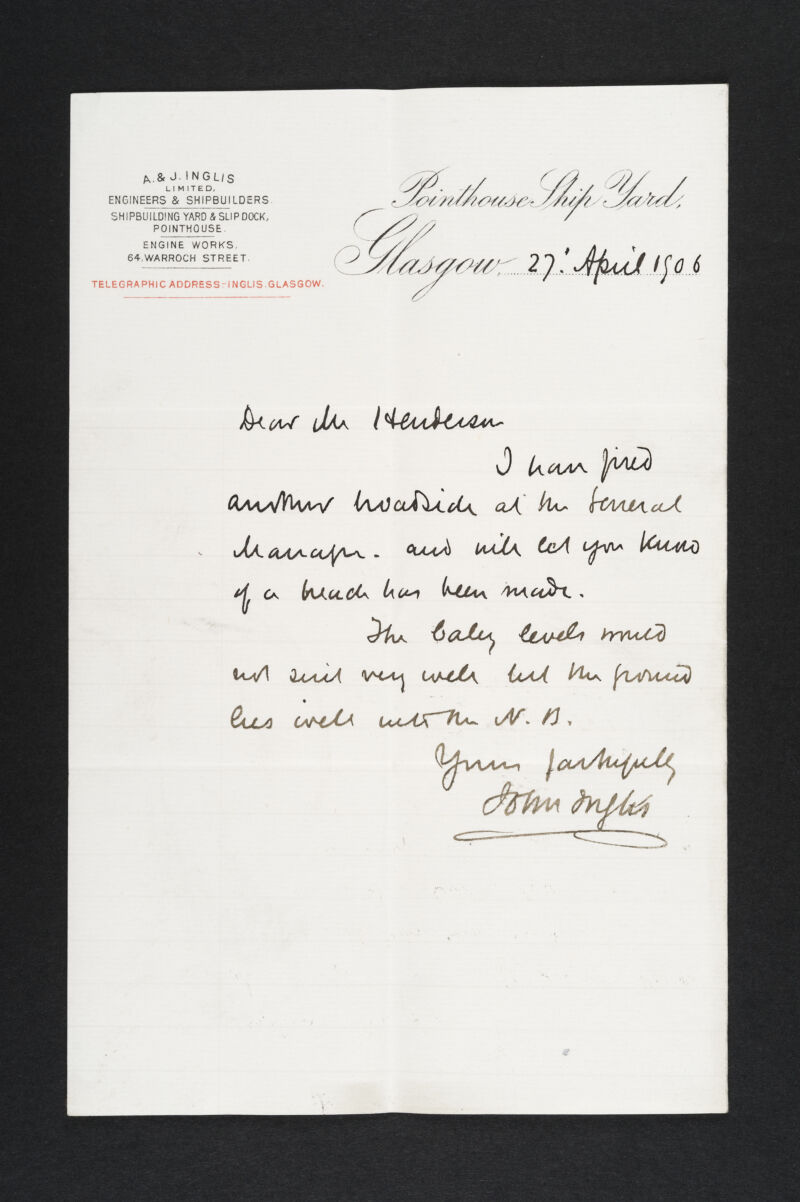 A. & J. INGLIS
LIMITED,
ENGINEERS & SHIPBUILDERS.
SHIPBUILDING YARD & SLIP DOCK,
POINTHOUSE.
ENGINE WORKS.
64, WARROCH STREET.
TELEGRAPHIC ADDRESS-INGLIS, GLASGOW.
Pointhouse Ship Yard,
Glasgow, 27: April 1906
Dear Mr Henderson
I have fired
another broadside at the General
Manager. and will let you know
if a breach has been made.
The Caley levels would
not suit very well but the ground
lies well with the N. B.
Yours faithfully
John Inglis